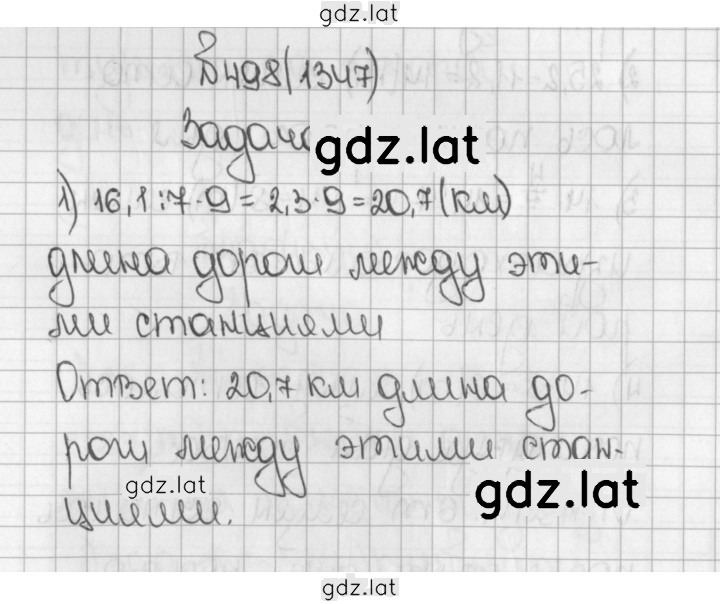 gdz.lat
№498(1347)
Задача
gdz.lat
1) 16,1:7·9=2,3·9=20,7(км)
длина дороги между эти-
ми станциями
Ответ: 20,7 км длина до-
роги между этими стан-
gdz.lat
gdz.lat
циями.
gdz.lat